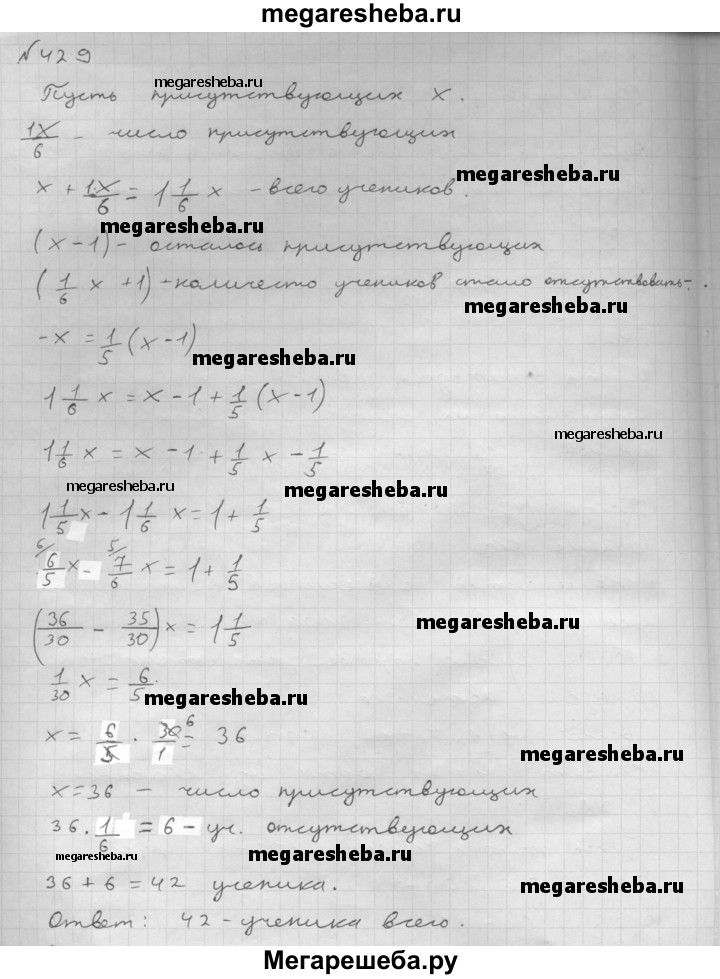 megaresheba.ru
№429
megaresheba.ru
Пусть присутствующих x.
1x/6 - число присутствующих
x + 1x/6 = 1 1/6 x - всего учеников.
megaresheba.ru
megaresheba.ru
(x-1) - осталось присутствующих
(1/6 x +1) - количесто учеников стало отсутствовать.
megaresheba.ru
-x = 1/5 (x-1)
megaresheba.ru
1 1/6 x = x - 1 + 1/5 (x-1)
megaresheba.ru
1 1/6 x = x - 1 + 1/5 x - 1/5
megaresheba.ru
megaresheba.ru
1 1/5 x - 1 1/6 x = 1 + 1/5
6/ 6/5 x - 5/ 7/6 x = 1 + 1/5
(36/30 - 35/30) x = 1 1/5
megaresheba.ru
1/30 x = 6/5.
megaresheba.ru
x = 6/5 · 30 6/1 = 36
megaresheba.ru
x=36 - число присутствующих
36 · 1/6 = 6 - уч. отсутствующих
megaresheba.ru
megaresheba.ru
36 + 6 = 42 ученика.
megaresheba.ru
Ответ: 42 - ученика всего.
Мегарешеба.ру